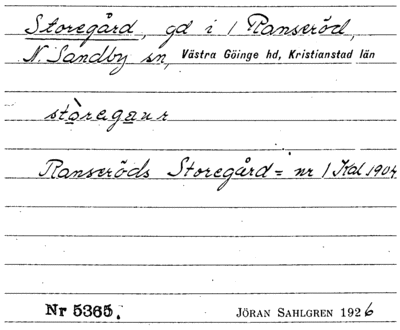 Storegård, gd i / Ranseröd,
N. Sandby sn, Västra Göinge hd, Kristianstad län
stòregaur
Ranseröds Storegård = nr 1 Kal 1904
Nr 5365. JÖRAN SAHLGREN 1926